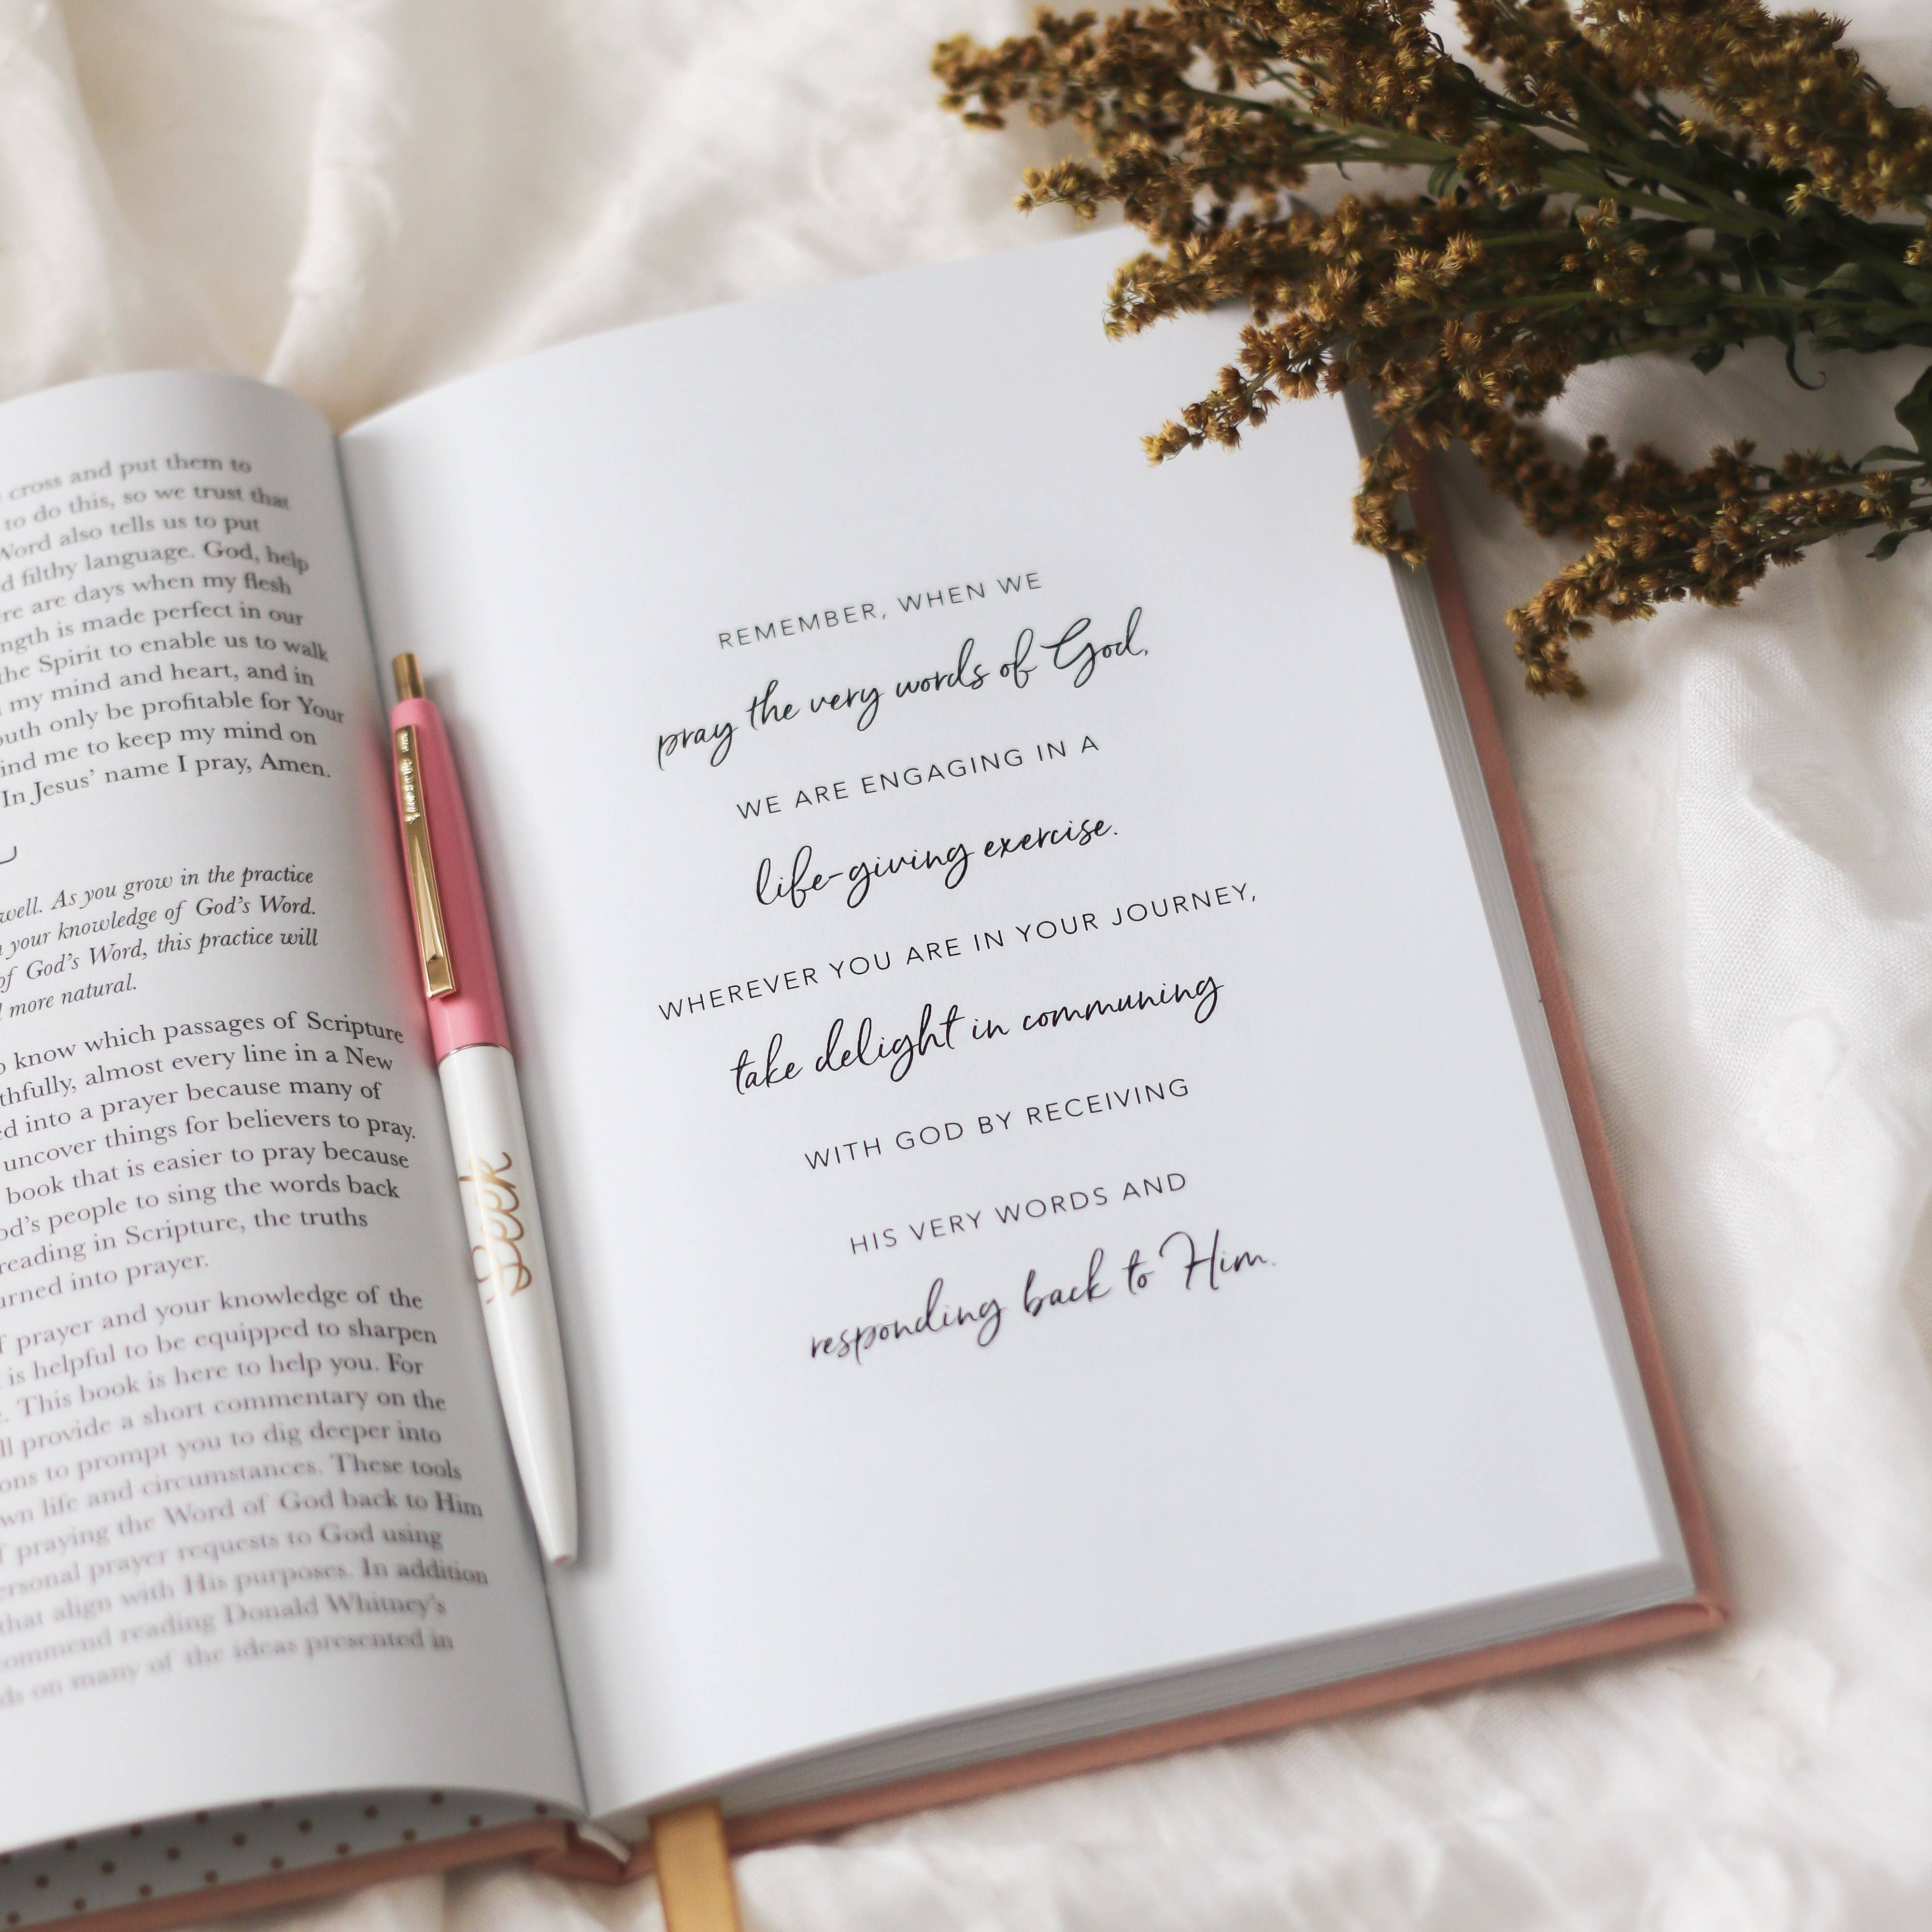 cross and put them to
to do this, so we trust that
Word also tells us to put
d filthy language. God, help
re are days when my flesh
ngth is made perfect in our
the Spirit to enable us to walk
my mind and heart, and in
outh only be profitable for Your
ind me to keep my mind on
In Jesus’ name I pray, Amen.
well. As you grow in the practice
your knowledge of God’s Word.
of God’s Word, this practice will
more natural.
know which passages of Scripture
thfully, almost every line in a New
ed into a prayer because many of
uncover things for believers to pray.
book that is easier to pray because
od’s people to sing the words back
reading in Scripture, the truths
urned into prayer.
f prayer and your knowledge of the
is helpful to be equipped to sharpen
. This book is here to help you. For
ll provide a short commentary on the
ons to prompt you to dig deeper into
wn life and circumstances. These tools
f praying the Word of God back to Him
ersonal prayer requests to God using
that align with His purposes. In addition
ommend reading Donald Whitney’s
ds on many of the ideas presented in
Seek
REMEMBER, WHEN WE
pray the very words of God,
WE ARE ENGAGING IN A
life-giving exercise.
WHEREVER YOU ARE IN YOUR JOURNEY,
take delight in communing
WITH GOD BY RECEIVING
HIS VERY WORDS AND
responding back to Him.